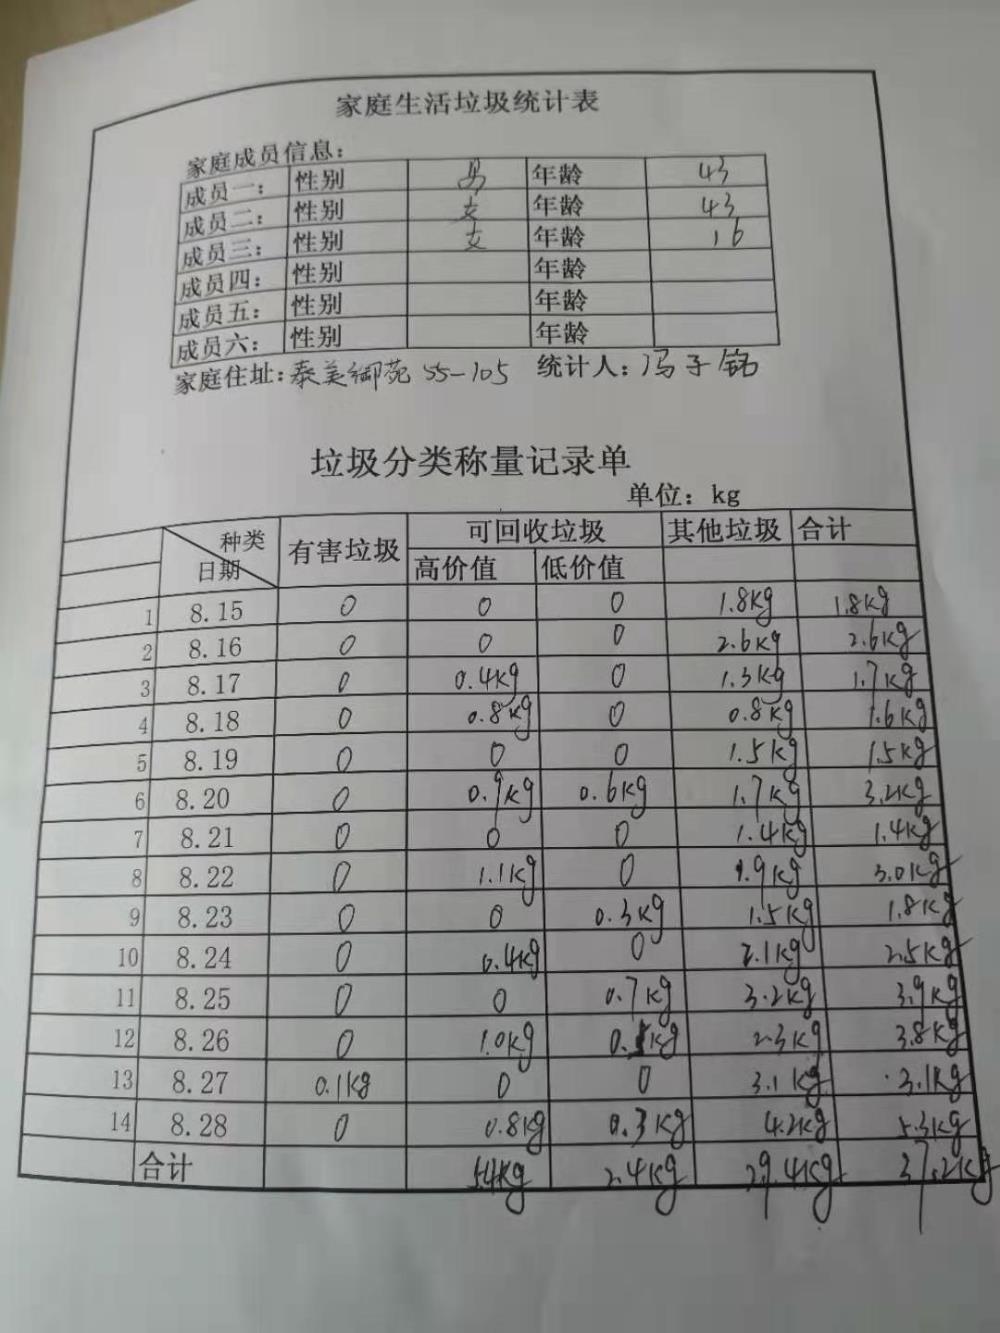 家庭生活垃圾统计表
家庭成员信息：
成员一： 性别 男 年龄 43
成员二： 性别 女 年龄 43
成员三： 性别 女 年龄 16
成员四： 性别 年龄
成员五： 性别 年龄
成员六： 性别 年龄
家庭住址：泰美御苑 55-105 统计人：冯子铭
垃圾分类称量记录单
单位：kg
种类 日期 有害垃圾 可回收垃圾 其他垃圾 合计
高价值 低价值
1 8.15 0 0 0 1.8kg 1.8kg
2 8.16 0 0 0 2.6kg 2.6kg
3 8.17 0 0.4kg 0 1.3kg 1.7kg
4 8.18 0 0.8kg 0 0.8kg 1.6kg
5 8.19 0 0 0 1.5kg 1.5kg
6 8.20 0 0.9kg 0.6kg 1.7kg 3.2kg
7 8.21 0 0 0 1.4kg 1.4kg
8 8.22 0 1.1kg 0 1.9kg 3.0kg
9 8.23 0 0 0.3kg 1.5kg 1.8kg
10 8.24 0 0.4kg 0 2.1kg 2.5kg
11 8.25 0 0 0.7kg 3.2kg 3.9kg
12 8.26 0 1.0kg 0.5kg 2.3kg 3.8kg
13 8.27 0.1kg 0 0 3.1kg 3.1kg
14 8.28 0 0.8kg 0.3kg 4.2kg 5.3kg
合计 5.4kg 2.4kg 29.4kg 37.2kg